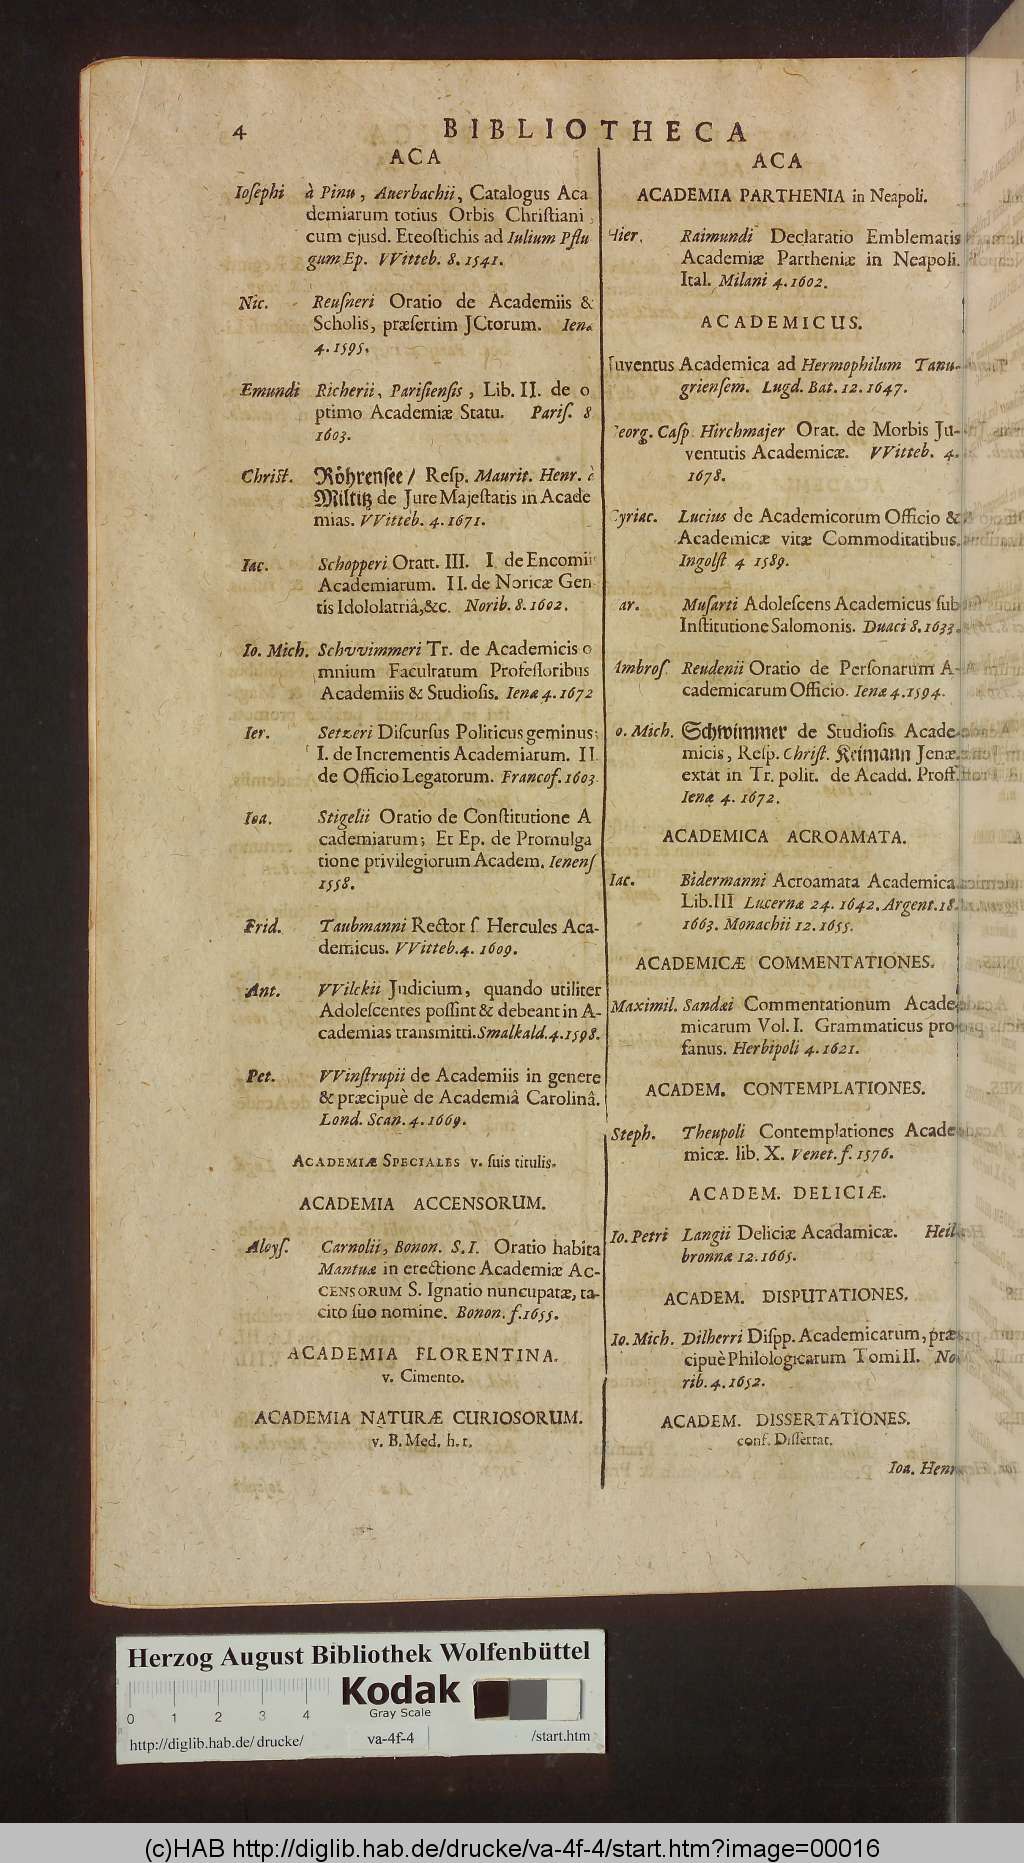 4 BIBLIOTHECA
ACA
Ioſephi à Pinu, Auerbachii, Catalogus Aca
demiarum totius Orbis Chriſtiani,
cum ejusd. Eteoſtichis ad Iulium Pflu
gum Ep. VVitteb. 8. 1541.
Nic. Reuſneri Oratio de Academiis &
Scholis, præſertim JCtorum. Ienæ
4. 1595.
Emundi Richerii, Pariſienſis, Lib. II. de o
ptimo Academiæ Statu. Pariſ. 8
1603.
Chriſt. Röhrenſee / Reſp. Maurit. Henr. è
Miltitz de Jure Majeſtatis in Acade
mias. VVitteb. 4. 1671.
Iac. Schopperi Oratt. III. I de Encomii
Academiarum. II. de Noricæ Gen
tis Idololatriâ, &c. Norib. 8. 1602.
Io. Mich. Schvvimmeri Tr. de Academicis o
mnium Facultatum Profeſſoribus
Academiis & Studioſis. Ienæ 4. 1672
Ier. Setzeri Diſcurſus Politicus geminus;
I. de Incrementis Academiarum. II
de Officio Legatorum. Francof. 1603.
Ioa. Stigelii Oratio de Conſtitutione A
cademiarum; Et Ep. de Promulga
tione privilegiorum Academ. Ienenſ
1558.
Frid. Taubmanni Rector ſ. Hercules Aca-
demicus. VVitteb. 4. 1609.
Ant. VVilckii Judicium, quando utiliter
Adoleſcentes poſſint & debeant in A-
cademias transmitti. Smalkald. 4. 1598.
Pet. VVinſtrupii de Academiis in genere
& præcipuè de Academiâ Carolinâ.
Lond. Scan. 4. 1669.
ACADEMIÆ SPECIALES v. ſuis titulis.
ACADEMIA ACCENSORUM.
Aloyſ. Carnolii, Bonon. S. I. Oratio habita
Mantuæ in erectione Academiæ AC-
CENSORUM S. Ignatio nuncupatæ, ta-
cito ſuo nomine. Bonon. f. 1655.
ACADEMIA FLORENTINA.
v. Cimento.
ACADEMIA NATURÆ CURIOSORUM.
v. B. Med. h. t.
ACA
ACADEMIA PARTHENIA in Neapoli.
Hier. Raimundi Declaratio Emblematis
Academiæ Partheniæ in Neapoli.
Ital. Milani 4. 1602.
ACADEMICUS.
Juventus Academica ad Hermophilum Tanu-
grienſem. Lugd. Bat. 12. 1647.
Georg. Caſp. Hirchmajer Orat. de Morbis Ju-
ventutis Academicæ. VVitteb. 4.
1678.
Cyriac. Lucius de Academicorum Officio &
Academicæ vitæ Commoditatibus.
Ingolſt 4 1589.
ar. Muſarti Adoleſcens Academicus ſub
Inſtitutione Salomonis. Duaci 8. 1633.
Ambroſ. Reudenii Oratio de Perſonarum A-
cademicarum Officio. Ienæ 4. 1594.
o. Mich. Schwimmer de Studioſis Acade-
micis, Reſp. Chriſt. Keimann Jenæ.
extat in Tr. polit. de Acadd. Proff.
Ienæ 4. 1672.
ACADEMICA ACROAMATA.
Iac. Bidermanni Acroamata Academica
Lib. III Lucernæ 24. 1642. Argent. 18.
1663. Monachii 12. 1655.
ACADEMICÆ COMMENTATIONES.
Maximil. Sandæi Commentationum Acade
micarum Vol. I. Grammaticus pro
fanus. Herbipoli 4. 1621.
ACADEM. CONTEMPLATIONES.
Steph. Theupoli Contemplationes Acade
micæ. lib. X. Venet. f. 1576.
ACADEM. DELICIÆ.
Io. Petri Langii Deliciæ Acadamicæ. Heil
bronnæ 12. 1665.
ACADEM. DISPUTATIONES.
Io. Mich. Dilherri Diſpp. Academicarum, præ
cipuè Philologicarum Tomi II. No
rib. 4. 1652.
ACADEM. DISSERTATIONES.
conf. Diſſertat.
Ioa. Henr
Herzog August Bibliothek Wolfenbüttel
Kodak
Gray Scale
0 1 2 3 4
http://diglib.hab.de/drucke/ va-4f-4 /start.htm
(c)HAB http://diglib.hab.de/drucke/va-4f-4/start.htm?image=00016